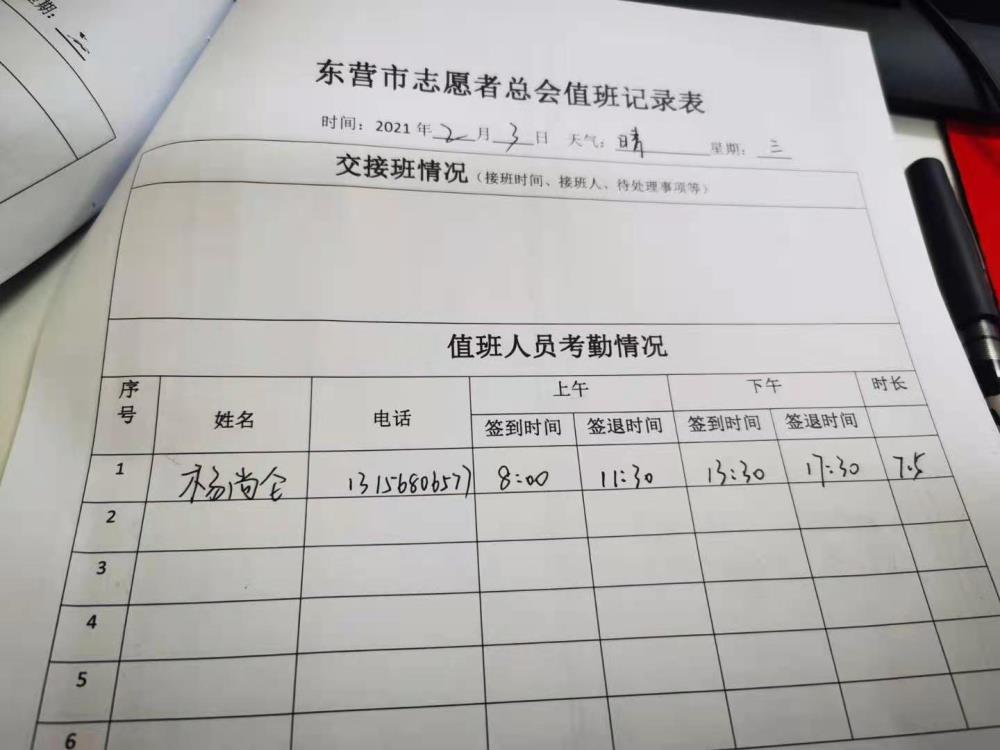 期: 二
东营市志愿者总会值班记录表
时间: 2021 年 2 月 3 日 天气: 晴 星期: 三
交接班情况 (接班时间、接班人、待处理事项等)
值班人员考勤情况
序号 姓名 电话 上午 下午 时长
签到时间 签退时间 签到时间 签退时间
1 杨尚仝 13156806577 8:00 11:30 13:30 17:30 7.5
2
3
4
5
6